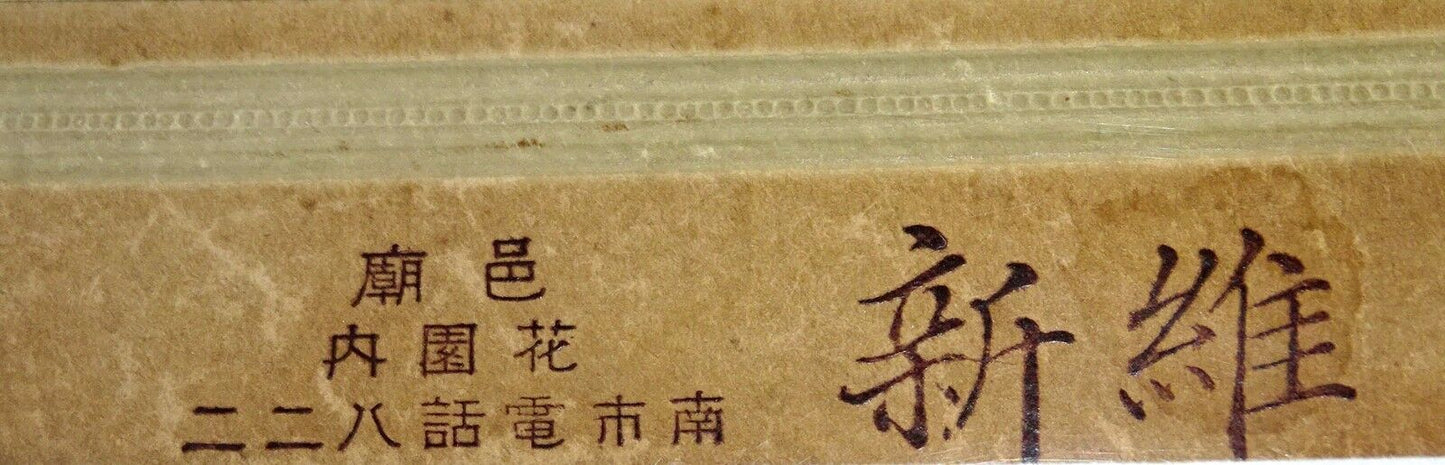 維新
邑廟
花園內
南市電話八二二二